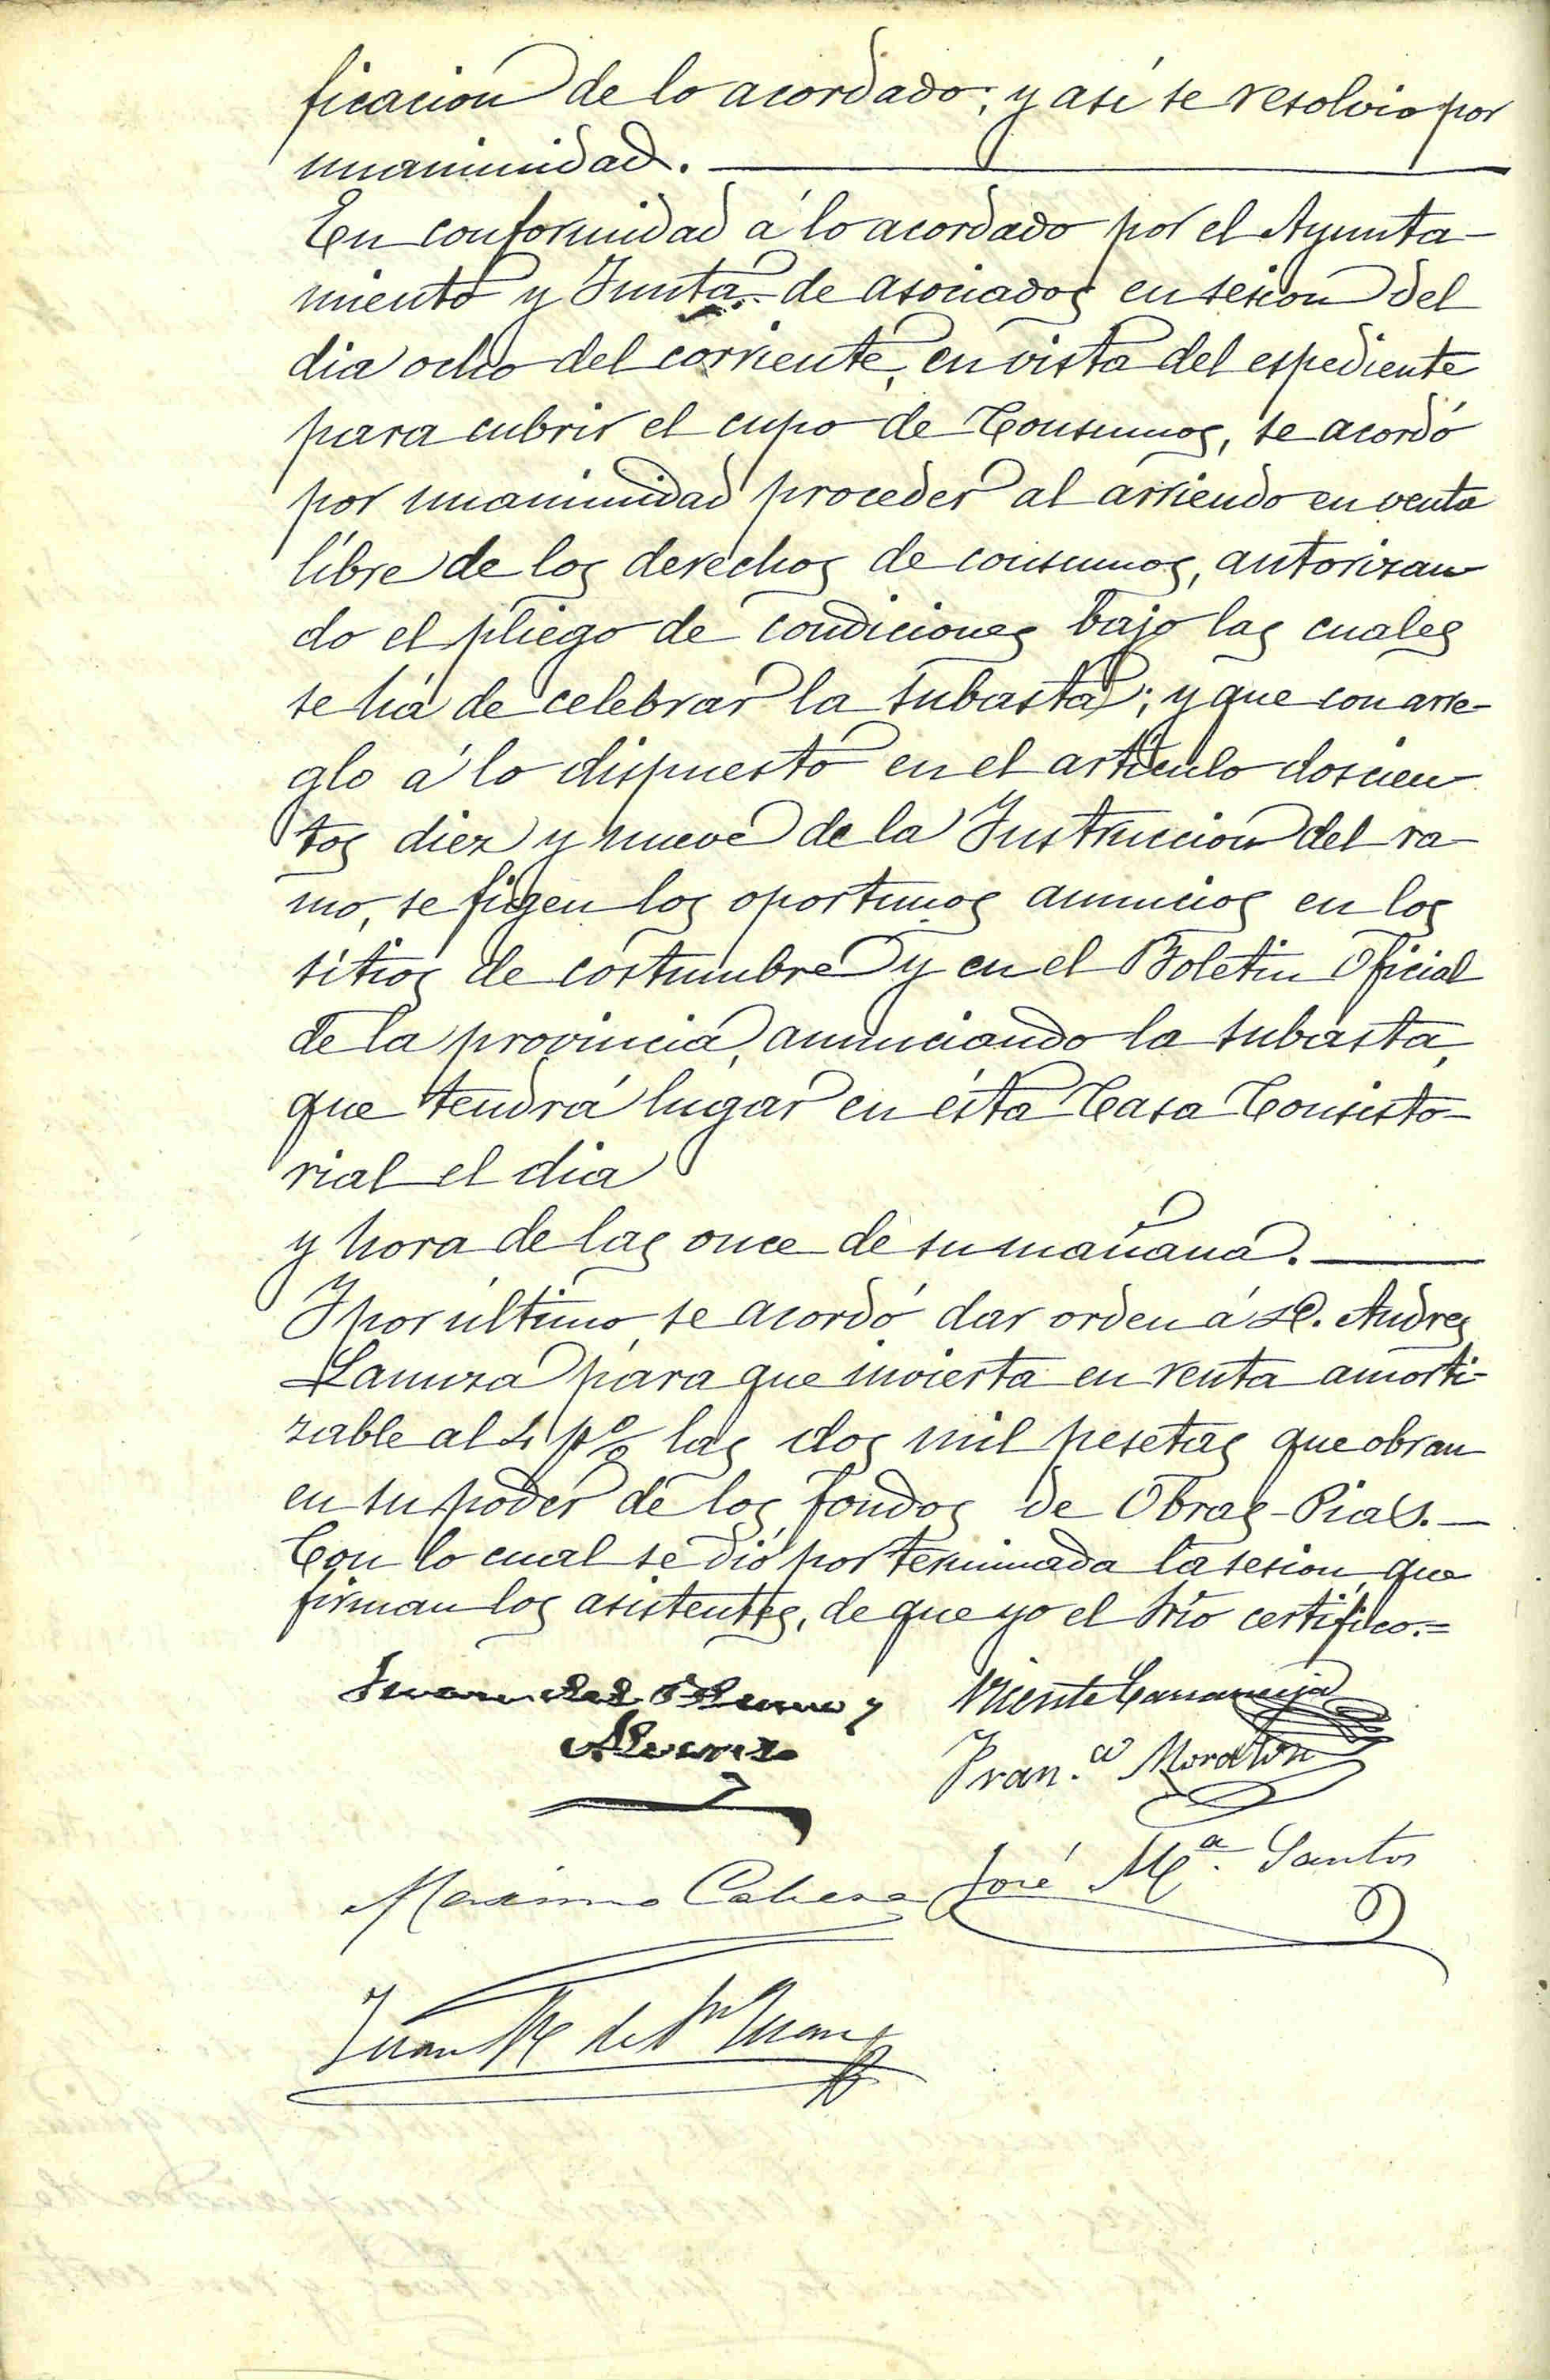 ficacion de lo acordado; y asi se resolvio por
unanimidad.
En conformidad á lo acordado por el Ayunta-
miento y Junta de asociados en sesion del
dia ocho del corriente, en vista del espediente
para cubrir el cupo de Consumos, se acordó
por unanimidad proceder al arriendo en venta
libre de los derechos de consumos, autorizan-
do el pliego de condiciones bajo las cuales
se há de celebrar la subasta; y que con arre-
glo á lo dispuesto en el artículo doscien-
tos diez y nueve de la Instruccion del ra-
mo, se figen los oportunos anuncios en los
sitios de costumbre y en el Boletin Oficial
de la provincia, anunciando la subasta,
que tendrá lugar en ésta Casa Consisto-
rial el dia
y hora de las once de su mañana.
Y por último, se acordó dar orden á D. Andres
Lanuza para que invierta en renta amorti-
zable al 4 p% las dos mil pesetas que obran
en su poder de los fondos de Obras-Pias.
Con lo cual se dió por terminada la sesion, que
firman los asistentes, de que yo el Srio certifico.=
Juan del y Vicente
Alvarez Fran.co Moraton
Maximo Cabeza José Mª. Santos
Juan de Sn Juan